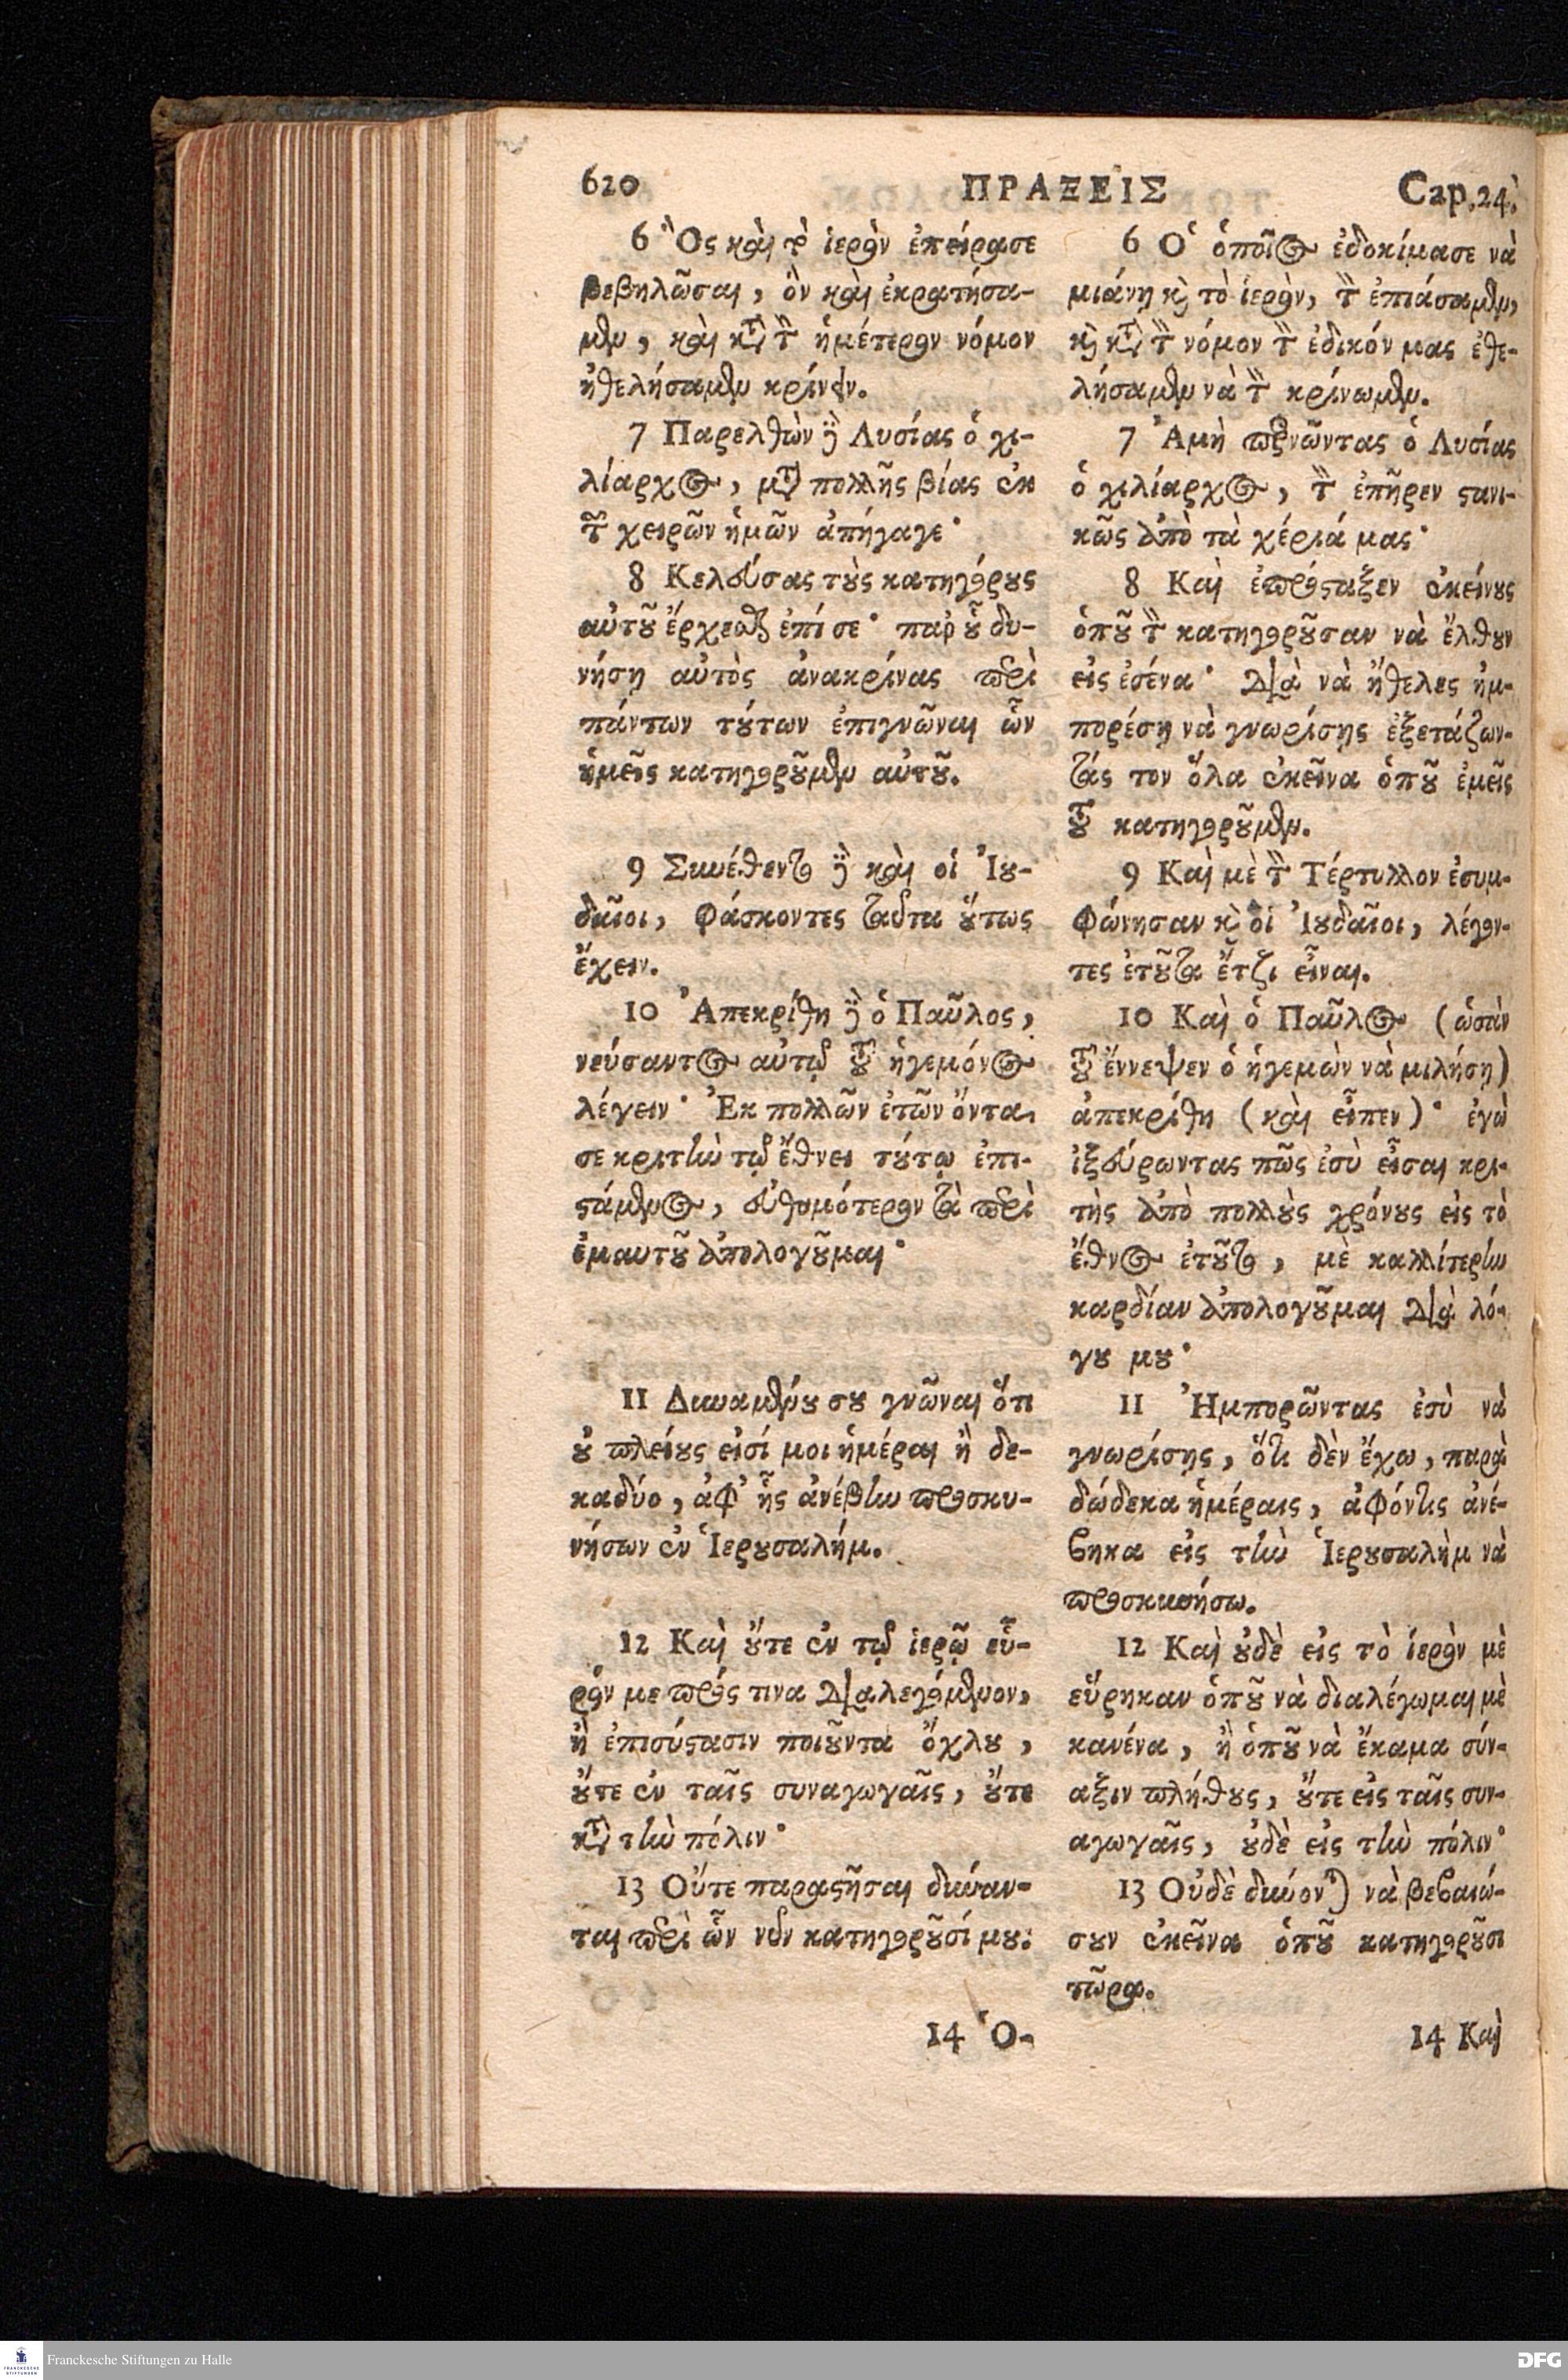 620 ΠΡΑΞΕΙΣ Cap. 24.
6 Ὃς καὶ τὸ ἱερὸν ἐπείρασε
βεβηλῶσαι, ὃν καὶ ἐκρατήσα-
μεν, καὶ κατὰ τὸν ἡμέτερον νόμον
ἠθελήσαμεν κρίνειν.
7 Παρελθὼν δὲ Λυσίας ὁ χι-
λίαρχος, μετὰ πολλῆς βίας ἐκ
τῶν χειρῶν ἡμῶν ἀπήγαγε·
8 Κελεύσας τοὺς κατηγόρους
αὐτοῦ ἔρχεσθαι ἐπί σε· παρ' οὗ δυ-
νήσῃ αὐτὸς ἀνακρίνας περὶ
πάντων τούτων ἐπιγνῶναι ὧν
ἡμεῖς κατηγοροῦμεν αὐτοῦ.
9 Συνέθεντο δὲ καὶ οἱ Ἰου-
δαῖοι, φάσκοντες ταῦτα οὕτως
ἔχειν.
10 Ἀπεκρίθη δὲ ὁ Παῦλος,
νεύσαντος αὐτῷ τοῦ ἡγεμόνος
λέγειν· Ἐκ πολλῶν ἐτῶν ὄντα
σε κριτὴν τῷ ἔθνει τούτῳ ἐπι-
στάμενος, εὐθυμότερον τὰ περὶ
ἐμαυτοῦ ἀπολογοῦμαι·
11 Δυναμένου σου γνῶναι ὅτι
οὐ πλείους εἰσί μοι ἡμέραι ἢ δε-
καδύο, ἀφ' ἧς ἀνέβην προσκυ-
νήσων ἐν Ἱερουσαλήμ.
12 Καὶ οὔτε ἐν τῷ ἱερῷ εὗ-
ρόν με πρός τινα διαλεγόμενον,
ἢ ἐπισύστασιν ποιοῦντα ὄχλου,
οὔτε ἐν ταῖς συναγωγαῖς, οὔτε
κατὰ τὴν πόλιν·
13 Οὔτε παραστῆσαι δύναν-
ται περὶ ὧν νῦν κατηγοροῦσί μου.
14 Ὁ-
6 Ὁ ὁποῖος ἐδοκίμασε νὰ
μιάνῃ καὶ τὸ ἱερὸν, τὸν ἐπιάσαμεν,
καὶ κατὰ τὸν νόμον τὸν ἐδικόν μας ἐθε-
λήσαμεν νὰ τὸν κρίνωμεν.
7 Ἀμὴ περνῶντας ὁ Λυσίας
ὁ χιλίαρχος, τὸν ἐπῆρεν στανι-
κῶς ἀπὸ τὰ χέριά μας·
8 Καὶ ἐπρόσταξεν ἐκείνους
ὁποῦ τὸν κατηγοροῦσαν νὰ ἔλθουν
εἰς ἐσένα· διὰ νὰ ἤθελες ἠμ-
πορέσῃ νὰ γνωρίσῃς ἐξετάζων-
τάς τον ὅλα ἐκεῖνα ὁποῦ ἐμεῖς
τοῦ κατηγοροῦμεν.
9 Καὶ μὲ τὸν Τέρτυλλον ἐσυμ-
φώνησαν καὶ οἱ Ἰουδαῖοι, λέγον-
τες ἐτοῦτα ἔτζι εἶναι.
10 Καὶ ὁ Παῦλος (ὡσὰν
τοῦ ἔννεψεν ὁ ἡγεμὼν νὰ μιλήσῃ)
ἀπεκρίθη (καὶ εἶπεν)· ἐγὼ
ἰξεύρωντας πῶς ἐσὺ εἶσαι κρι-
τὴς ἀπὸ πολλοὺς χρόνους εἰς τὸ
ἔθνος ἐτοῦτο, μὲ καλλίτερην
καρδίαν ἀπολογοῦμαι διὰ λό-
γου μου·
11 Ἠμπορῶντας ἐσὺ νὰ
γνωρίσῃς, ὅτι δὲν ἔχω, παρὰ
δώδεκα ἡμέραις, ἀφόντις ἀνέ-
βηκα εἰς τὴν Ἱερουσαλὴμ νὰ
προσκυνήσω.
12 Καὶ οὐδὲ εἰς τὸ ἱερὸν μὲ
εὕρηκαν ὁποῦ νὰ διαλέγωμαι μὲ
κανένα, ἢ ὁποῦ νὰ ἔκαμα σύν-
αξιν πλήθους, οὔτε εἰς ταῖς συν-
αγωγαῖς, οὐδὲ εἰς τὴν πόλιν·
13 Οὐδὲ δύνονται νὰ βεβαιώ-
σουν ἐκεῖνα ὁποῦ κατηγοροῦσι
τῶρα.
14 Καὶ
Franckesche Stiftungen zu Halle
DFG